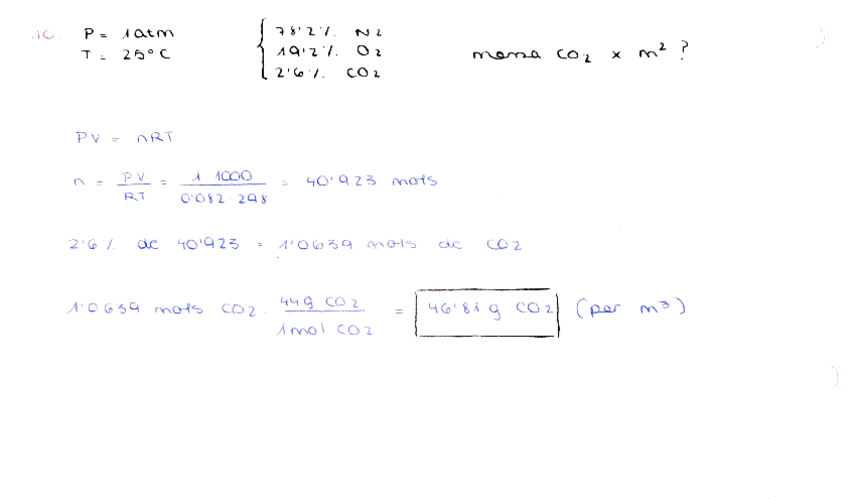 10. P = 1atm { 78'2%. N2
T = 25°C 19'2%. O2 massa CO2 x m² ?
2'6%. CO2
PV = nRT
n = PV/RT = 1 1000/0'082·298 = 40'923 mols
2'6% de 40'923 = 1'0639 mols de CO2
1'0639 mols CO2 · 44g CO2/1mol CO2 = 46'81g CO2 (per m³)